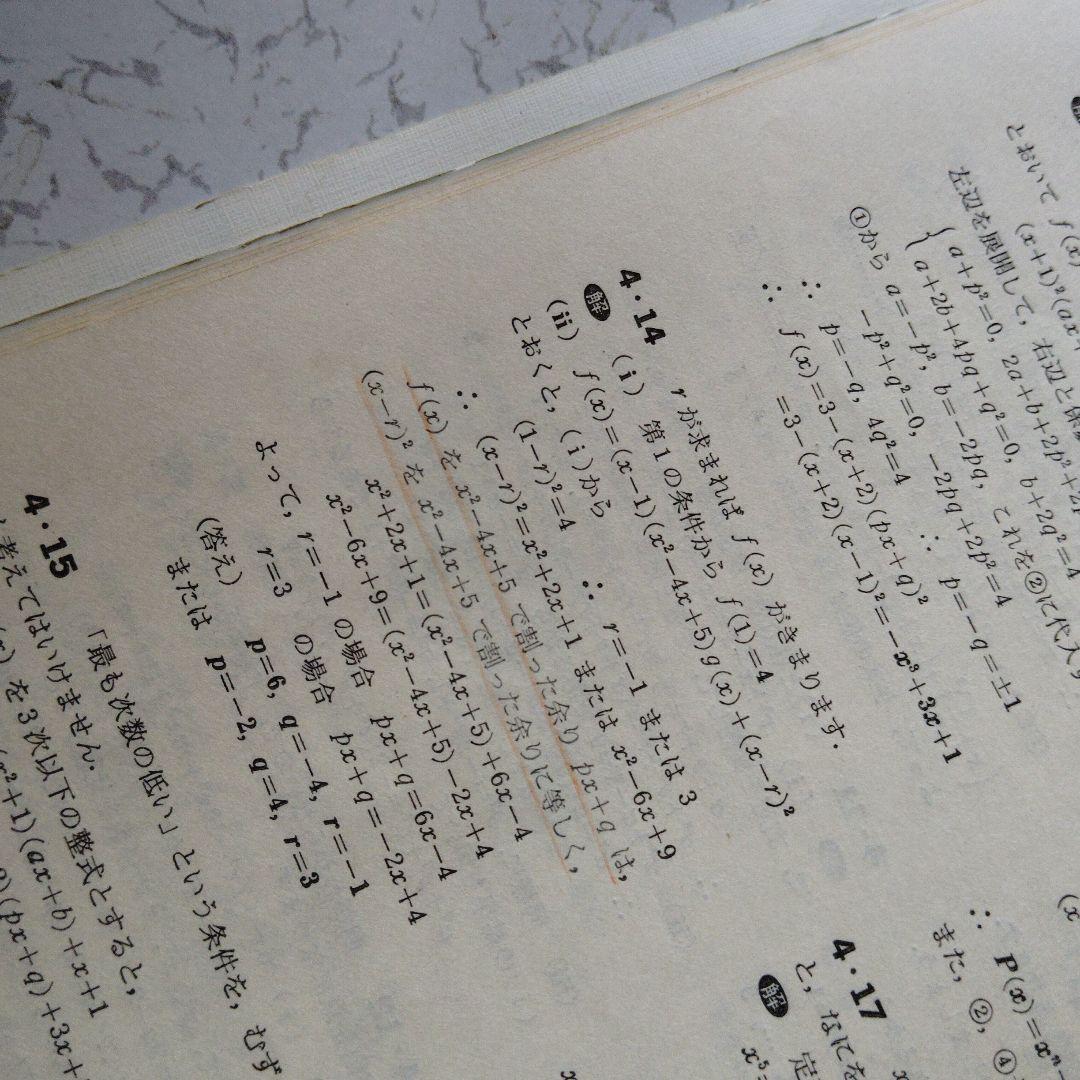 とおいて f(x)
(x+1)²(ax+
左辺を展開して，右辺と係
a+p²=0, 2a+b+2p²+2p
a+2b+4pq+q²=0, b+2q²=4
①から a=-p², b=-2pq, これを②に代入,
-p²+q²=0, -2pq+2p²=4
∴ p=-q, 4q²=4 ∴ p=-q=±1
∴ f(x)=3-(x+2)(px+q)²
=3-(x+2)(x-1)²=-x³+3x+1
4・14 rが求まれば f(x) がきまります．
解 (i) 第1の条件から f(1)=4
(ii) f(x)=(x-1)(x²-4x+5)g(x)+(x-r)²
とおくと，(i)から
(1-r)²=4 ∴ r=-1 または 3
∴ (x-r)²=x²+2x+1 または x²-6x+9
f(x) を x²-4x+5 で割った余り px+q は，
(x-r)² を x²-4x+5 で割った余りに等しく，
x²+2x+1=(x²-4x+5)+6x-4
x²-6x+9=(x²-4x+5)-2x+4
よって，r=-1 の場合 px+q=6x-4
r=3 の場合 px+q=-2x+4
(答え) p=6, q=-4, r=-1
または p=-2, q=4, r=3
4・15 「最も次数の低い」という条件を，むず
考えてはいけません．
(x) を3次以下の整式とすると，
(x²+1)(ax+b)+x+1
(px+q)+3x+
(x
∴ P(x)=xⁿ-
また，②，④
4・17
と，なにを
解 定
x⁵=
x